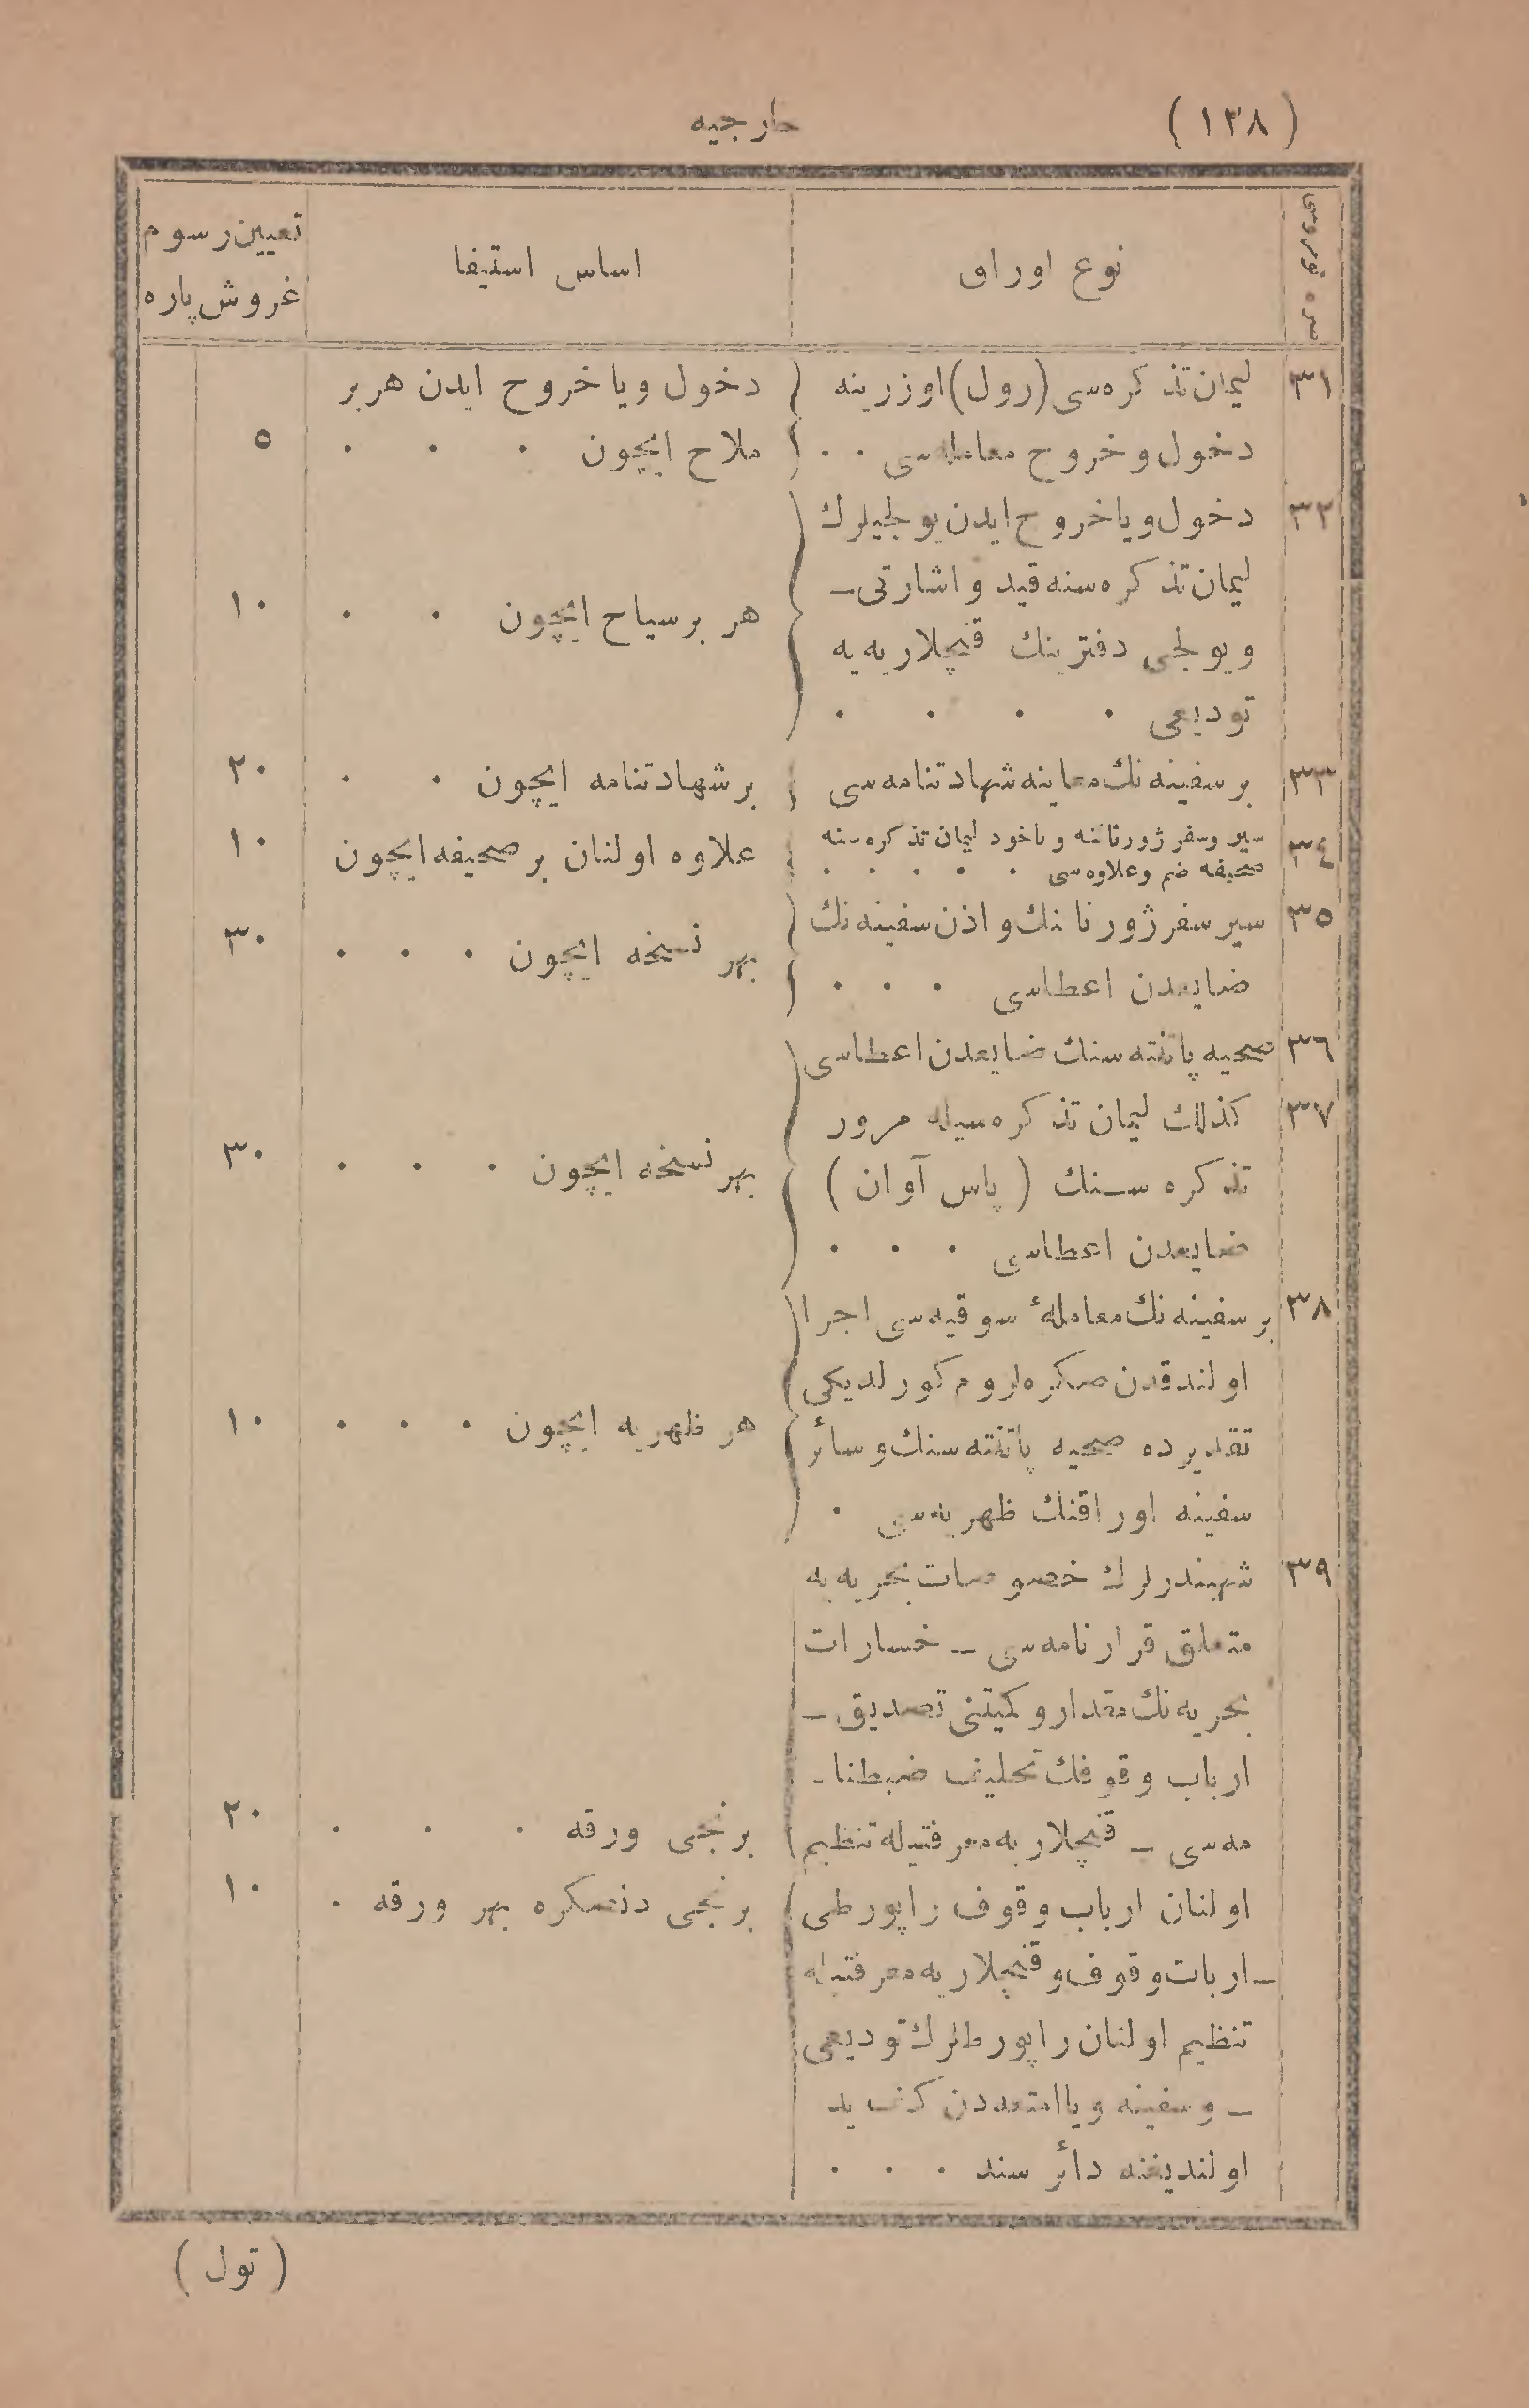 (١٣٨)
خارجیه
سره نومروسی
نوع اوراق
اساس استیفا
تعیین رسوم
غروش پاره
٣١ لیمان تذکره‌سی (رول) اوزرینه
دخول و خروج معامله‌سی . .
دخول ویا خروج ایدن هر بر
ملاح ایچون . . . ٥
٣٢ دخول و یاخروج ایدن یولجیلرك
لیمان تذکره‌سنه قید و اشارتی ـ
و یولجی دفترینك قنچلاریه‌یه
تودیعی . . . .
هر بر سیاح ایچون . . ١٠
٣٣ بر سفینه‌نك معاینه شهادتنامه‌سی
بر شهادتنامه ایچون . . ٢٠
٣٤ سیر وسفر ژورنالنه و یاخود لیمان تذکره‌سنه
صحیفه ضم وعلاوه‌سی . . . . .
علاوه اولنان بر صحیفه ایچون ١٠
٣٥ سیر سفر ژورنالنك و اذن سفینه‌نك
ضایعدن اعطاسی . . .
بهر نسخه ایچون . . . ٣٠
٣٦ صحیه پاتنته‌سنك ضایعدن اعطاسی
٣٧ کذلك لیمان تذکره‌سیله مرور
تذکره سنك ( پاس آوان )
ضایعدن اعطاسی . . .
بهر نسخه ایچون . . . ٣٠
٣٨ بر سفینه‌نك معاملهٔ سوقیه‌سی اجرا
اولندقدن صکره لزوم کورلدیکی
تقدیرده صحیه پاتنته‌سنك و سائر
سفینه اوراقنك ظهریه‌سی .
هر ظهریه ایچون . . . ١٠
٣٩ شهبندرلرك خصوصات بحریه‌یه
متعلق قرارنامه‌سی ـ خسارات
بحریه‌نك مقدار و کمیتنی تصدیق ـ
ارباب وقوفك تحلیف ضبطنا‌ـ
مه‌سی ـ قنچلاریه معرفتیله تنظیم
اولنان ارباب وقوف راپورطی
ـ اربات وقوف و قنچلاریه معرفتیله
تنظیم اولنان راپورطلرك تودیعی
ـ وسفینه ویا امتعه‌دن کف ید
اولندیغنه دائر سند . . .
برنجی ورقه . . . ٢٠
برنجی دنصکره بهر ورقه . ١٠
( تول )